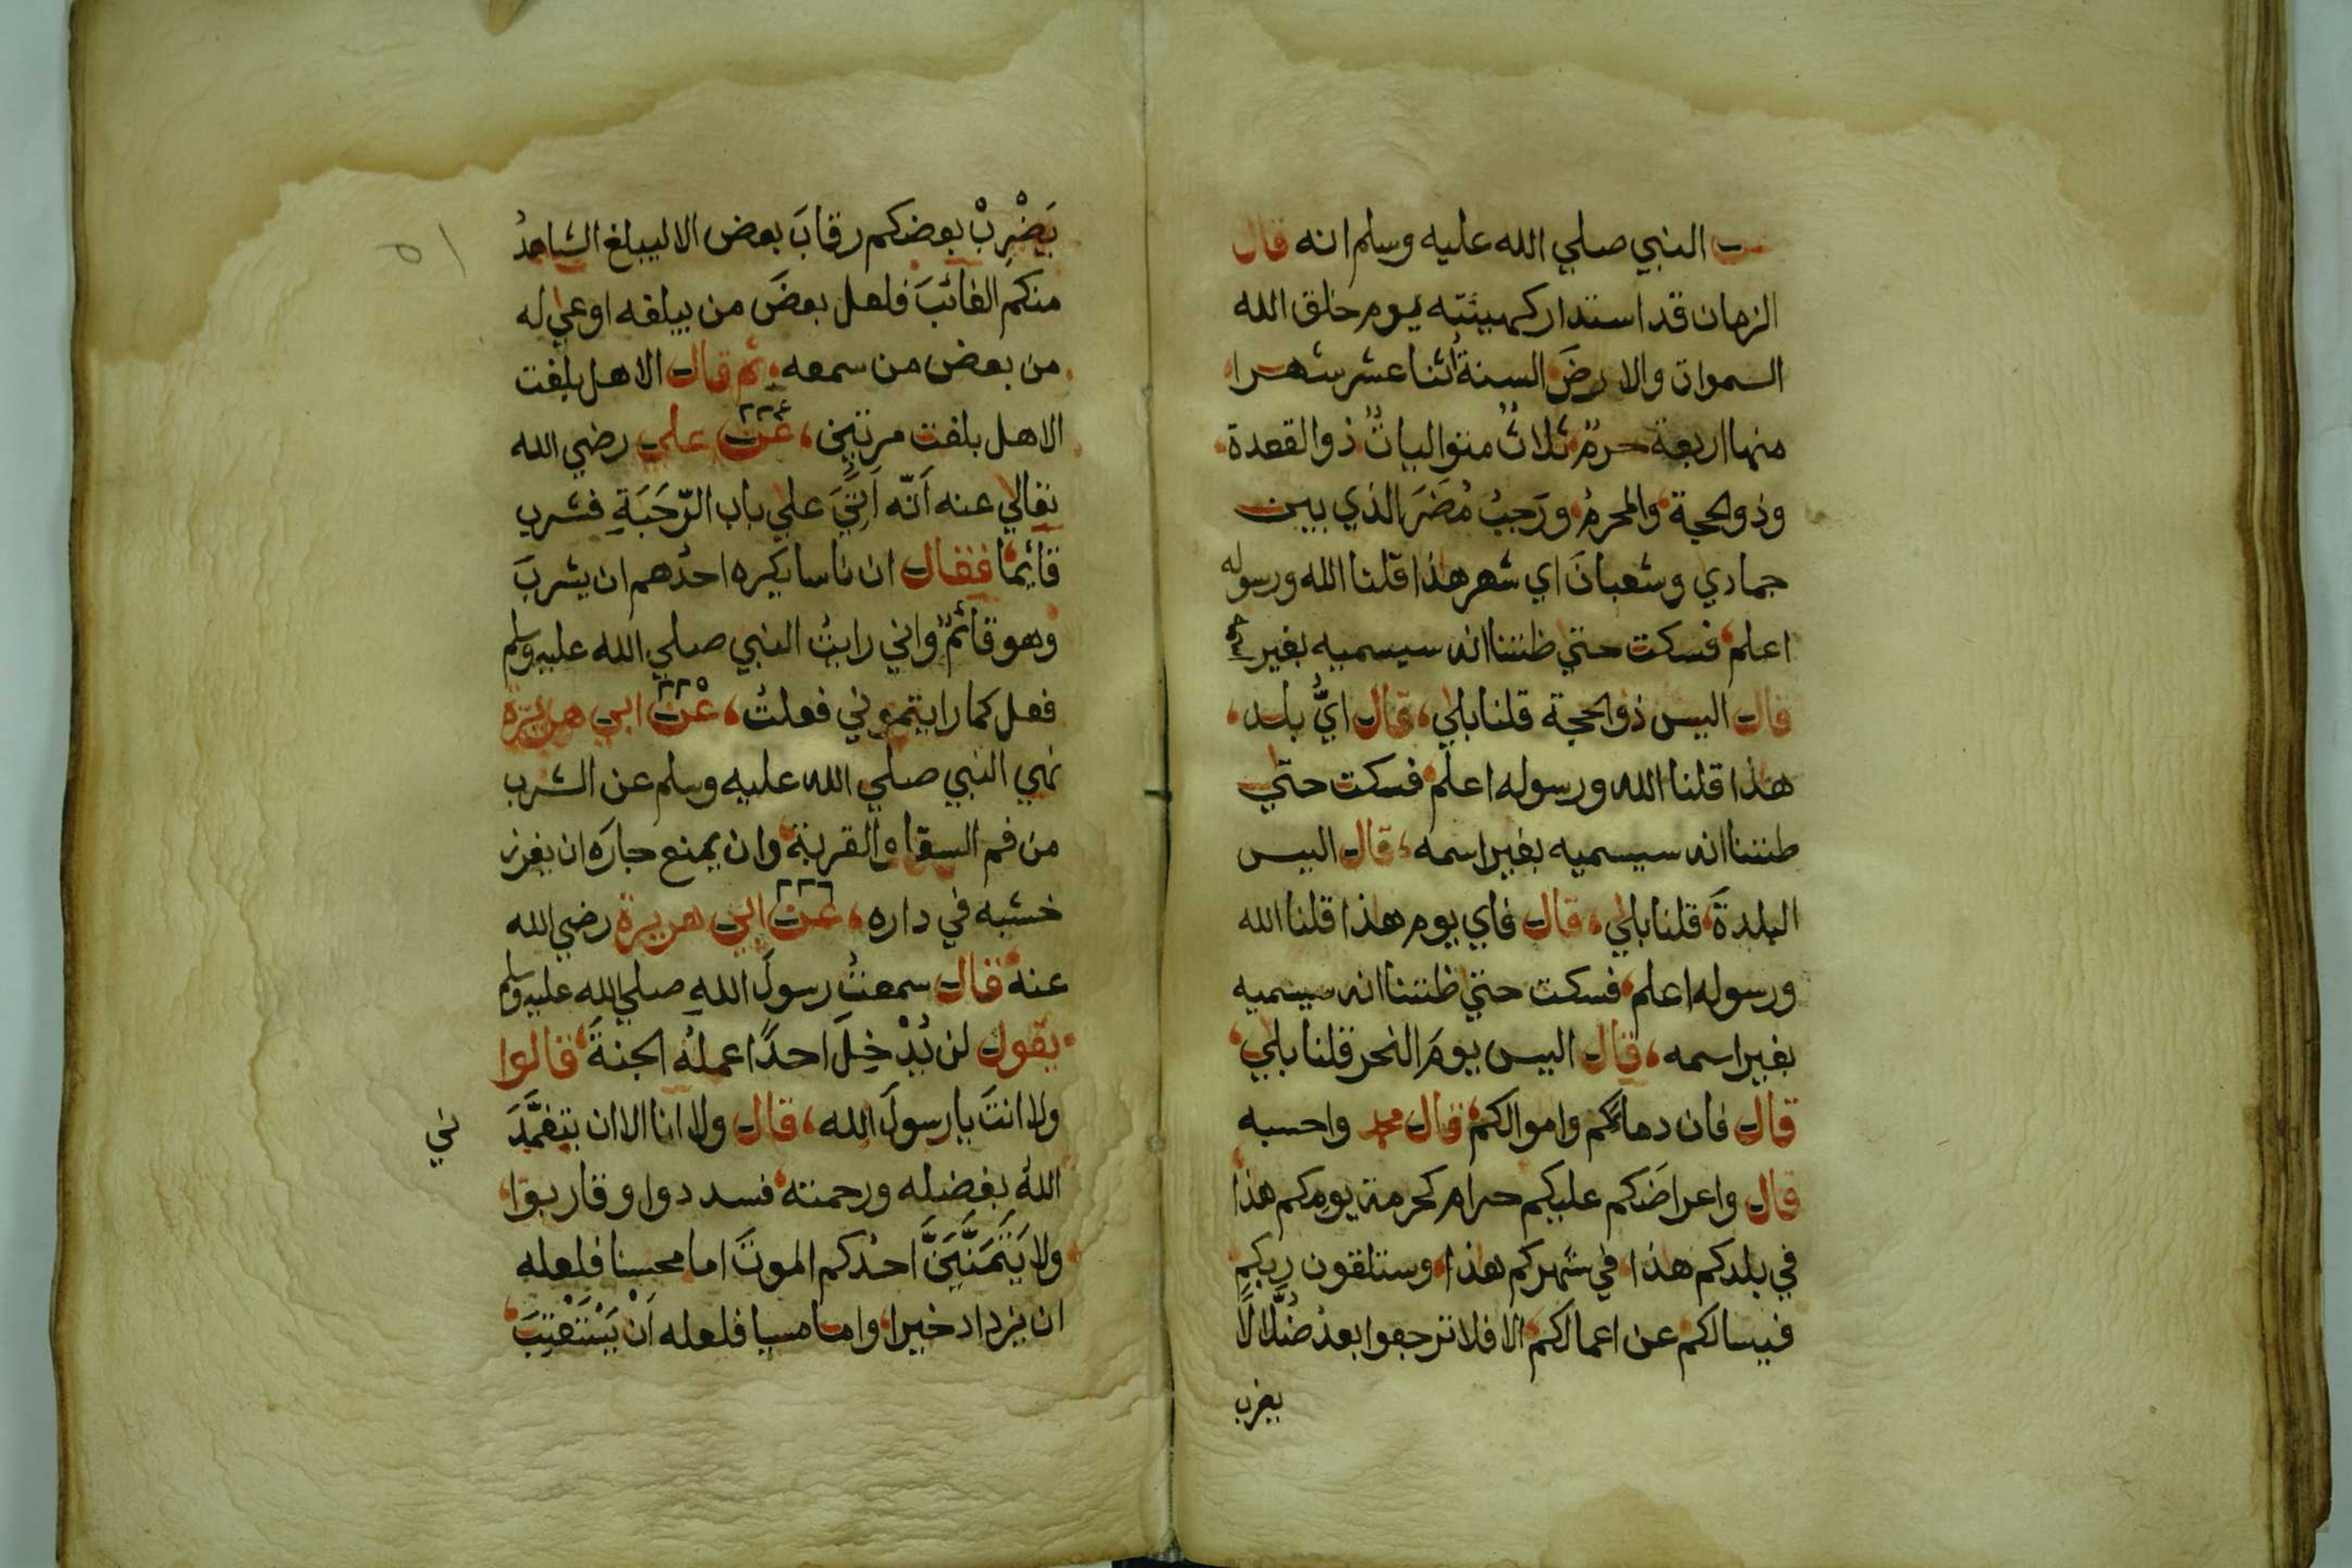 عن النبي صلي الله عليه وسلم انه قال
الزمان قد استدار كهيئته يوم خلق الله
السموات والارضَ السنةُ اثنا عشر شهرا
منها اربعة حرمٌ ثلاثٌ متوالياتٌ ذو القعدة
وذو الحجة والمحرمُ ورَجبُ مُضَرَ الذي بين
جمادي وشعبانَ اي شهر هذا قلنا الله ورسوله
اعلم فسكت حتي ظننا انه سيسميه بغير
قال اليس ذو الحجة قلنا بلي، قال ايُّ بلد،
هذا قلنا الله ورسوله اعلم فسكت حتي
ظننا انه سيسميه بغير اسمه، قال اليس
البلدةَ قلنا بلي، قال فاي يوم هذا قلنا الله
ورسوله اعلم فسكت حتي ظننا انه سيسميه
بغير اسمه، قال اليس يومَ النحر قلنا بلي
قال فان دماءكم واموالكم قال محمد واحسبه
قال واعراضَكم عليكم حرام كحرمة يومكم هذا
في بلدكم هذا في شهركم هذا وستلقون ربكم
فيسالكم عن اعمالكم الا فلا ترجعوا بعدُ ضُلَّالًا
يضرب
٥١
يَضْرِبْ بعضكم رقابَ بعض الا ليبلغ الشاهدُ
منكم الغائبَ فلعل بعضَ من يبلغه اوعي له
من بعض من سمعه ثم قال الا هل بلغت
الا هل بلغت مرتين، عن علي رضي الله
٢٢٤
تعالي عنه اَنّه اَتيَ علي باب الرّحَبَةِ فشرب
قائما فقال ان ناسا يكره احدُهم ان يشربَ
وهو قائمٌ واني رايتُ النبي صلي الله عليه وسلم
فعل كما رايتموني فعلتُ، عن ابي هريرة
٢٢٥
نهي النبي صلي الله عليه وسلم عن الشرب
من فم السقاء والقربة وان يمنع جارَه ان يغرز
خشبه في داره، عن ابي هريرة رضي الله
٢٢٦
عنه قال سمعتُ رسولَ الله صلي الله عليه وسلم
يقول لن يُدْخِلَ احدًا عملُه الجنةَ قالوا
ولا انتَ يا رسولَ الله، قال ولا انا الا ان يتغمَّدَ
ني
اللهُ بفضله ورحمته فسددوا وقاربوا
ولا يَتَمَنَّيَنَّ احدُكم الموتَ اما محسنا فلعله
ان يزداد خيرا واما مسيا فلعله اَنْ يَسْتَعْتِبَ